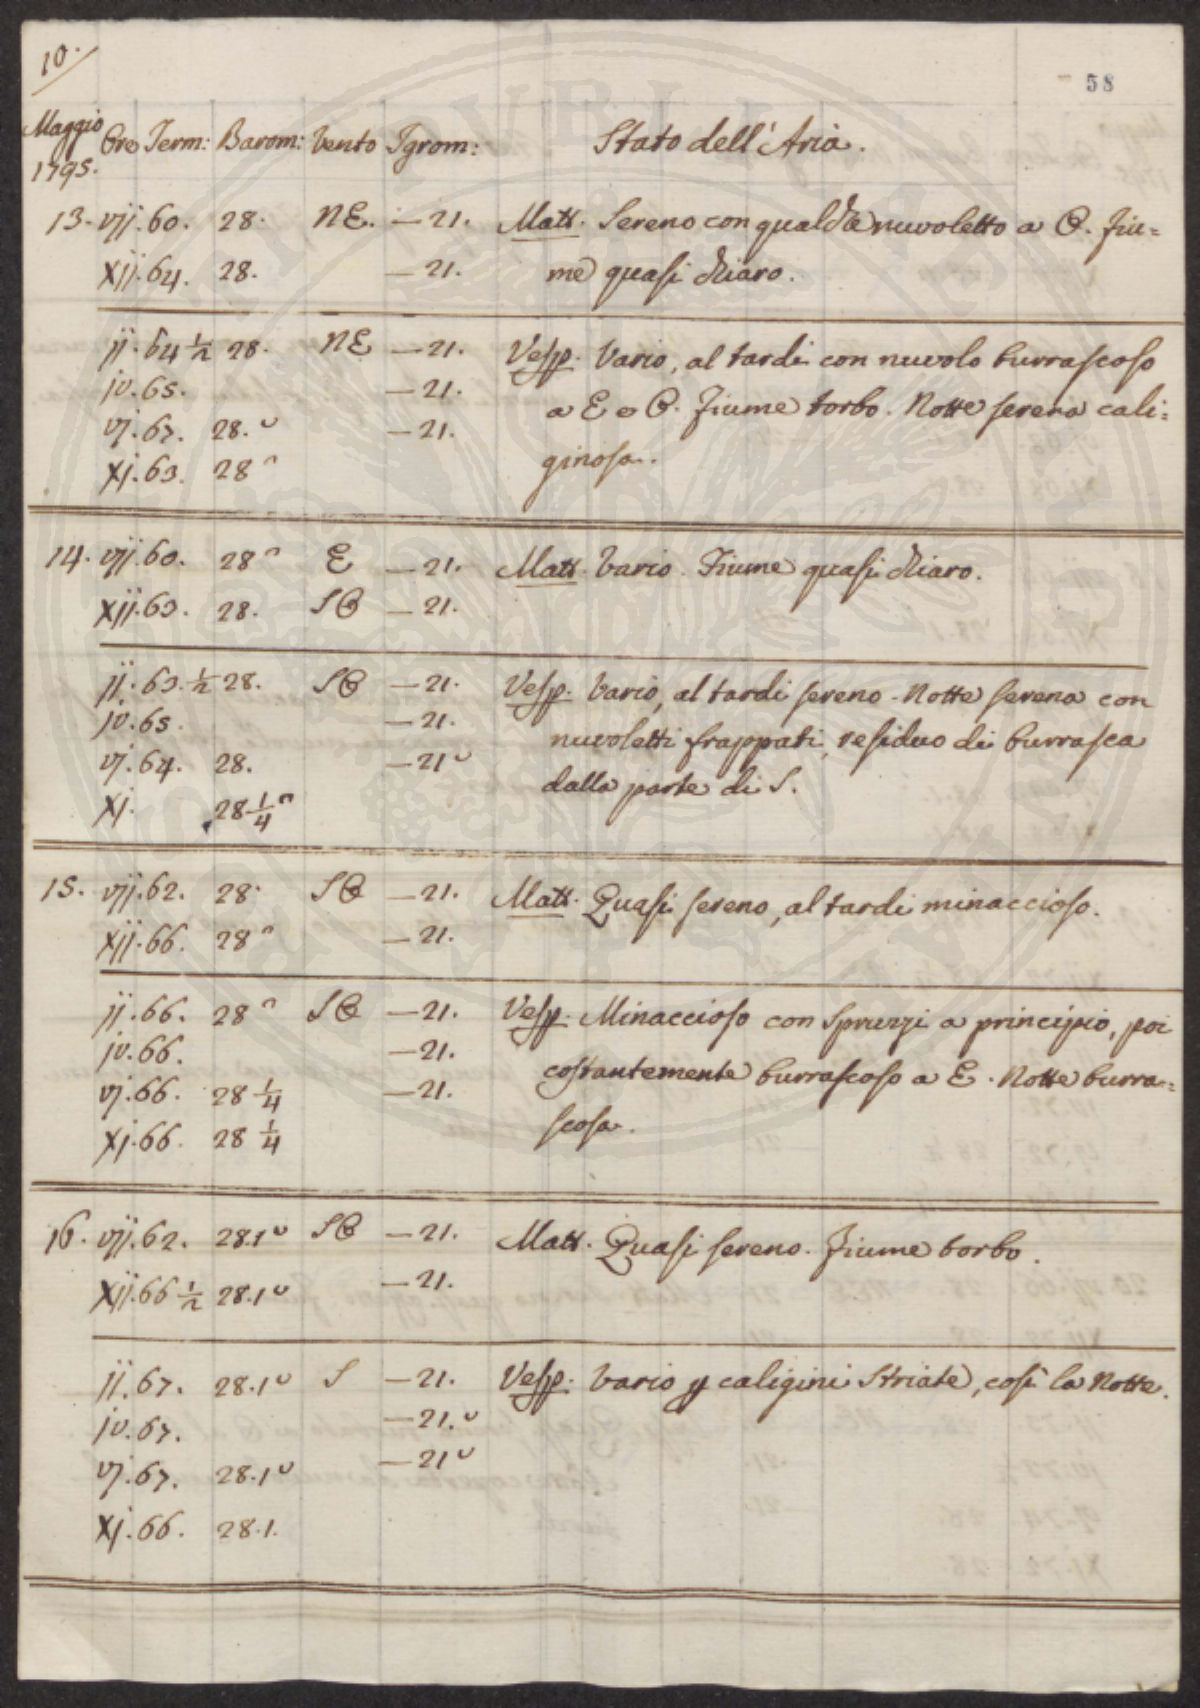 10.
58
Maggio 1795. Ore Term: Barom: Vento Igrom: Stato dell'Aria.
13. vij. 60. 28. NE. —21. Matt. Sereno con qualche nuvoletto a O. Fiu=
xij. 64. 28. —21. me quasi chiaro.
ij. 64 1/2 28. NE —21. Vesp. Vario, al tardi con nuvolo burrascoso
iv. 65. —21. a E e O. Fiume torbo. Notte serena cali=
vj. 67. 28. ᵕ —21. ginosa.
xj. 63. 28 ᵔ
14. vij. 60. 28 ᵔ E —21. Matt. Vario. Fiume quasi chiaro.
xij. 63. 28. SO —21.
ij. 63. 1/2 28. SO —21. Vesp. Vario, al tardi sereno. Notte serena con
iv. 65. —21. nuvoletti frappati, residuo di burrasca
vj. 64. 28. —21 ᵕ dalla parte di S.
xj. 28 1/4 ᵔ
15. vij. 62. 28. SO —21. Matt. Quasi sereno, al tardi minaccioso.
xij. 66. 28 ᵔ —21.
ij. 66. 28 ᵔ SO —21. Vesp. Minaccioso con spruzzi a principio, poi
iv. 66. —21. costantemente burrascoso a E. Notte burra=
vj. 66. 28 1/4 —21. scosa.
xj. 66. 28 1/4
16. vij. 62. 28.1 ᵕ SO —21. Matt. Quasi sereno. Fiume torbo.
xij. 66 1/2 28.1 ᵕ —21.
ij. 67. 28.1 ᵕ S —21. Vesp. Vario p caligini striate, così la Notte.
iv. 67. —21. ᵕ
vj. 67. 28.1 ᵕ —21 ᵕ
xj. 66. 28.1.